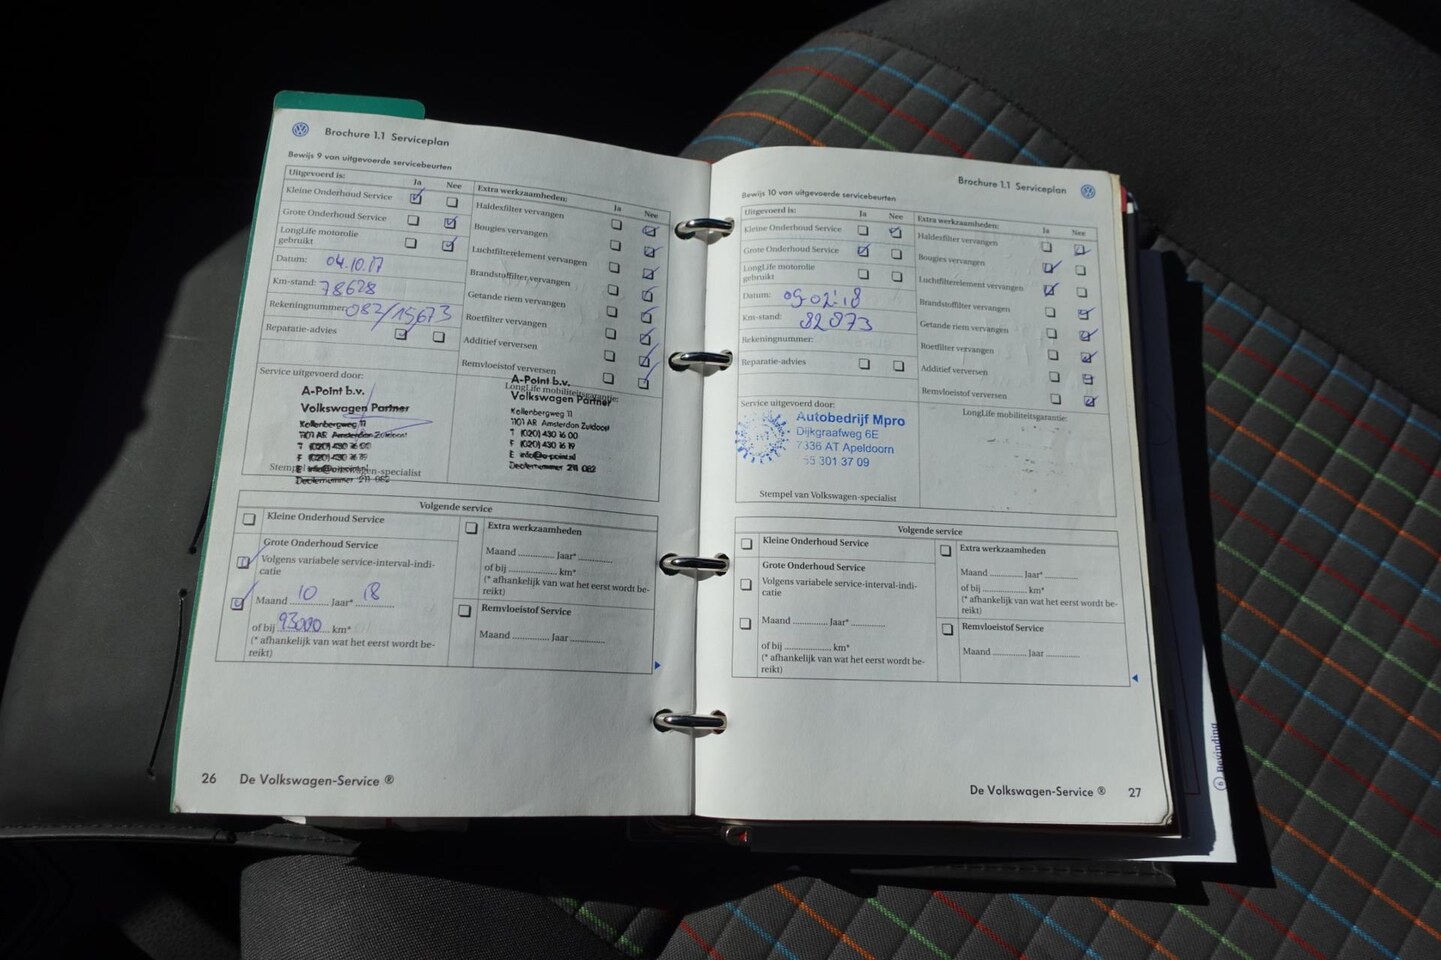 Brochure 1.1 Serviceplan
Bewijs 9 van uitgevoerde servicebeurten
Uitgevoerd is:
Ja
Nee
Kleine Onderhoud Service
Grote Onderhoud Service
LongLife motorolie
gebruikt
Datum: 04.10.17
Km-stand: 78628
Rekeningnummer: 082/15673
Reparatie-advies
Extra werkzaamheden:
Ja
Nee
Haldexfilter vervangen
Bougies vervangen
Luchtfilterelement vervangen
Brandstoffilter vervangen
Getande riem vervangen
Roetfilter vervangen
Additief verversen
Remvloeistof verversen
Service uitgevoerd door:
A-Point b.v.
Volkswagen Partner
Kollenbergweg 11
1101 AR Amsterdam Zuidoost
T (020) 430 16 00
F (020) 430 16 19
E info@a-point.nl
Dealernummer 211 082
LongLife mobiliteitsgarantie:
A-Point b.v.
Volkswagen Partner
Kollenbergweg 11
1101 AR Amsterdam Zuidoost
T (020) 430 16 00
F (020) 430 16 19
E info@a-point.nl
Dealernummer 211 082
Volgende service
Kleine Onderhoud Service
Grote Onderhoud Service
Volgens variabele service-interval-indi-
catie
Maand 10 Jaar* 18
of bij 93000 km*
(* afhankelijk van wat het eerst wordt be-
reikt)
Extra werkzaamheden
Maand .............. Jaar* ..............
of bij .................. km*
(* afhankelijk van wat het eerst wordt be-
reikt)
Remvloeistof Service
Maand .............. Jaar ..............
26 De Volkswagen-Service ®
Brochure 1.1 Serviceplan
Bewijs 10 van uitgevoerde servicebeurten
Uitgevoerd is:
Ja
Nee
Kleine Onderhoud Service
Grote Onderhoud Service
LongLife motorolie
gebruikt
Datum: 09-02-18
Km-stand: 82873
Rekeningnummer:
Reparatie-advies
Extra werkzaamheden:
Ja
Nee
Haldexfilter vervangen
Bougies vervangen
Luchtfilterelement vervangen
Brandstoffilter vervangen
Getande riem vervangen
Roetfilter vervangen
Additief verversen
Remvloeistof verversen
Service uitgevoerd door:
Autobedrijf Mpro
Dijkgraafweg 6E
7336 AT Apeldoorn
55 301 37 09
Stempel van Volkswagen-specialist
LongLife mobiliteitsgarantie:
Volgende service
Kleine Onderhoud Service
Grote Onderhoud Service
Volgens variabele service-interval-indi-
catie
Maand .............. Jaar* ..............
of bij .................. km*
(* afhankelijk van wat het eerst wordt be-
reikt)
Extra werkzaamheden
Maand .............. Jaar* ..............
of bij .................. km*
(* afhankelijk van wat het eerst wordt be-
reikt)
Remvloeistof Service
Maand .............. Jaar ..............
De Volkswagen-Service ® 27